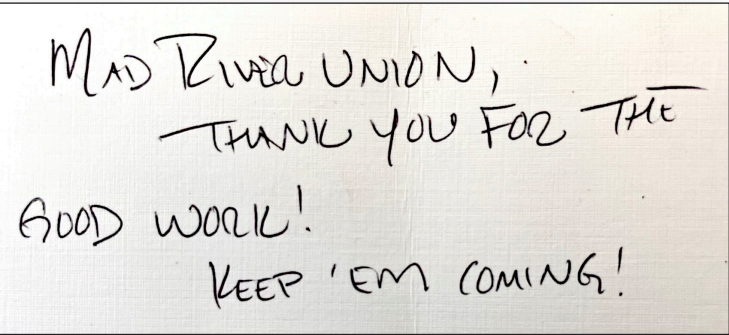 MAD RIVER UNION,
THANK YOU FOR THE
GOOD WORK!
KEEP 'EM COMING!